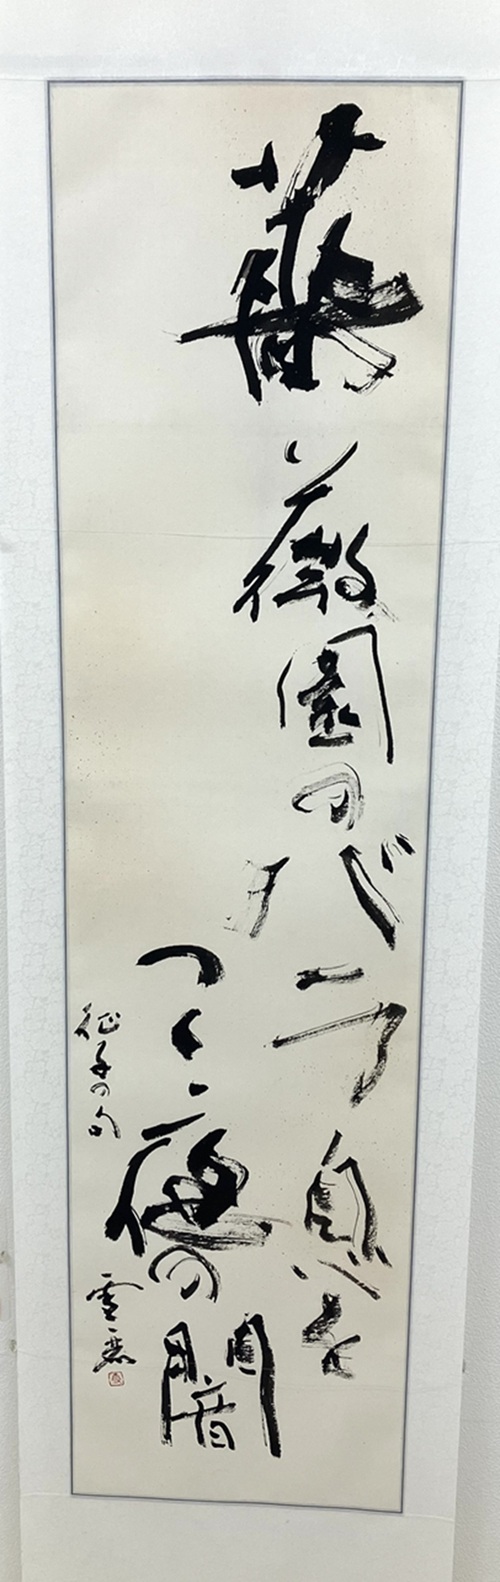 薔薇園のバラ息を
つく夜の闇
征子の句
雪麗